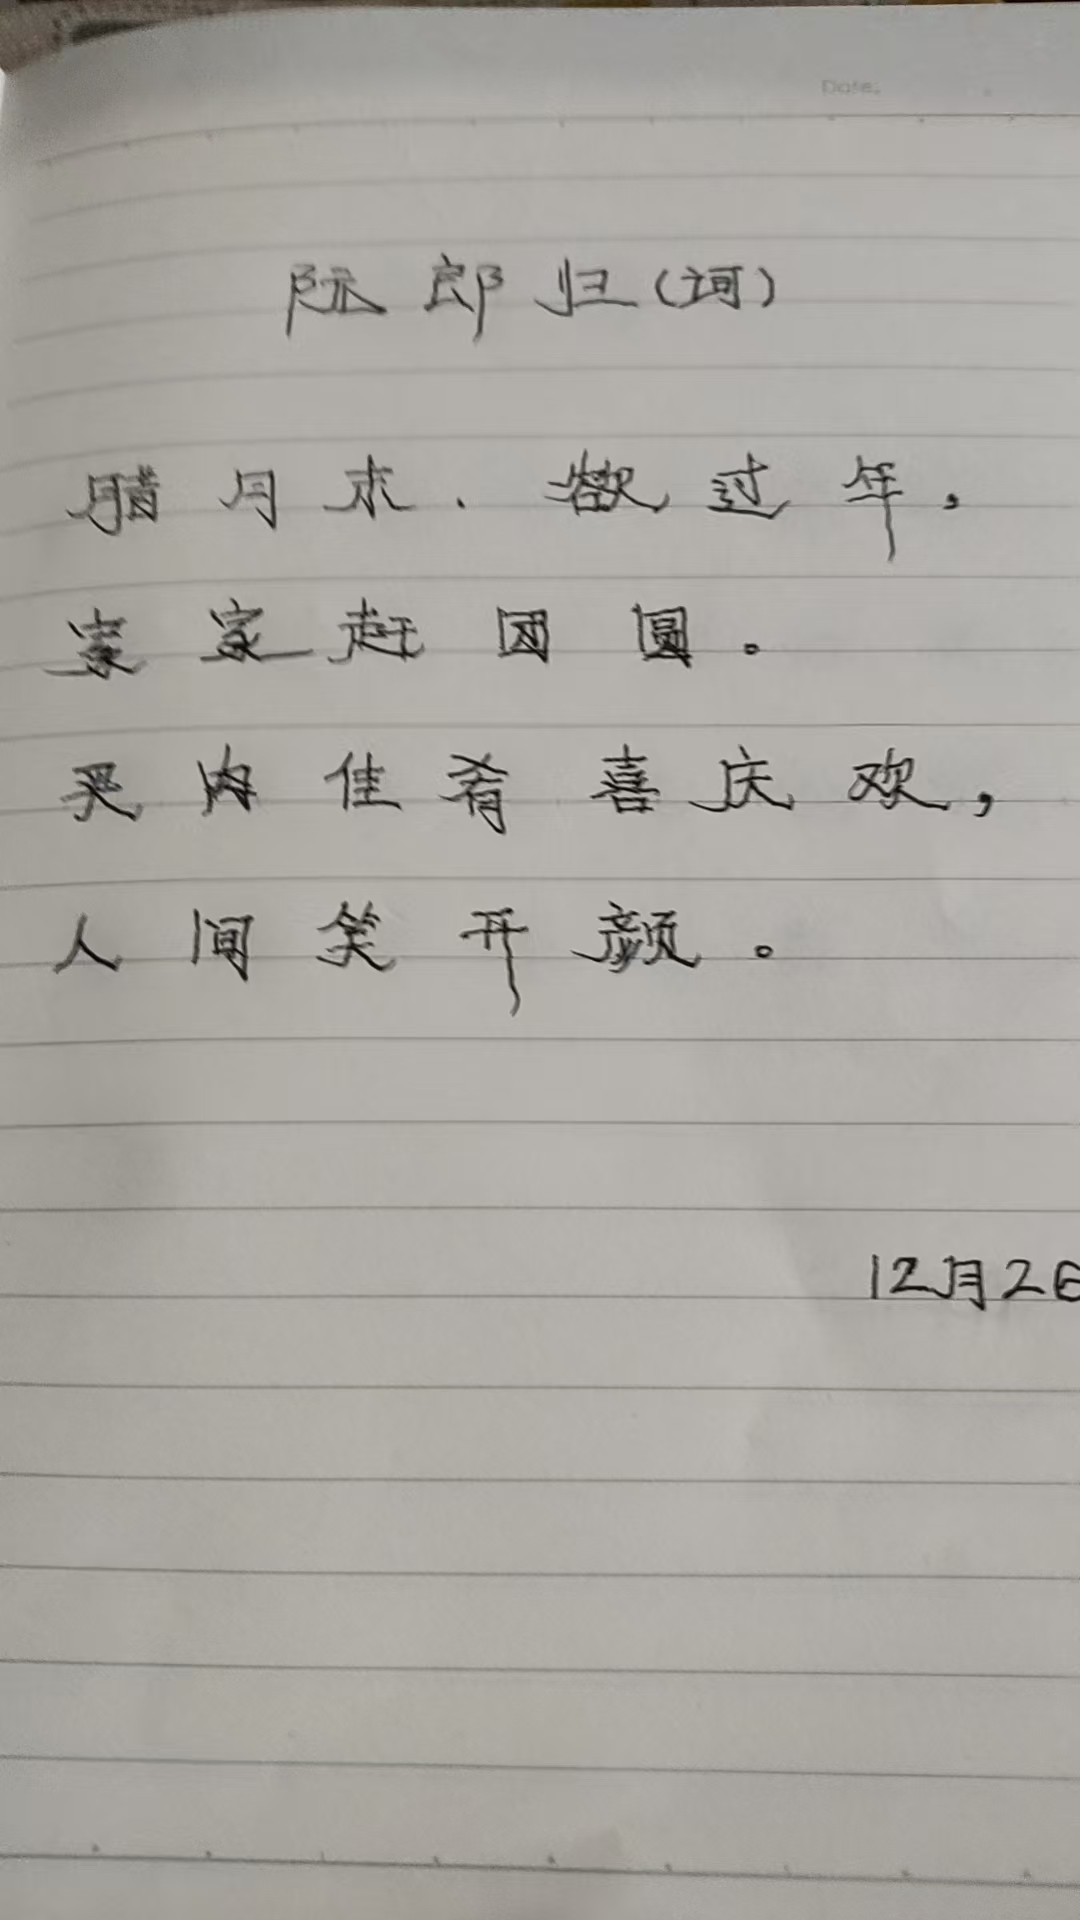 Date.
阮郎归(词)
腊月末.欲过年,
家家赶团圆。
灵肉佳肴喜庆欢,
人间笑开颜。
12月2日